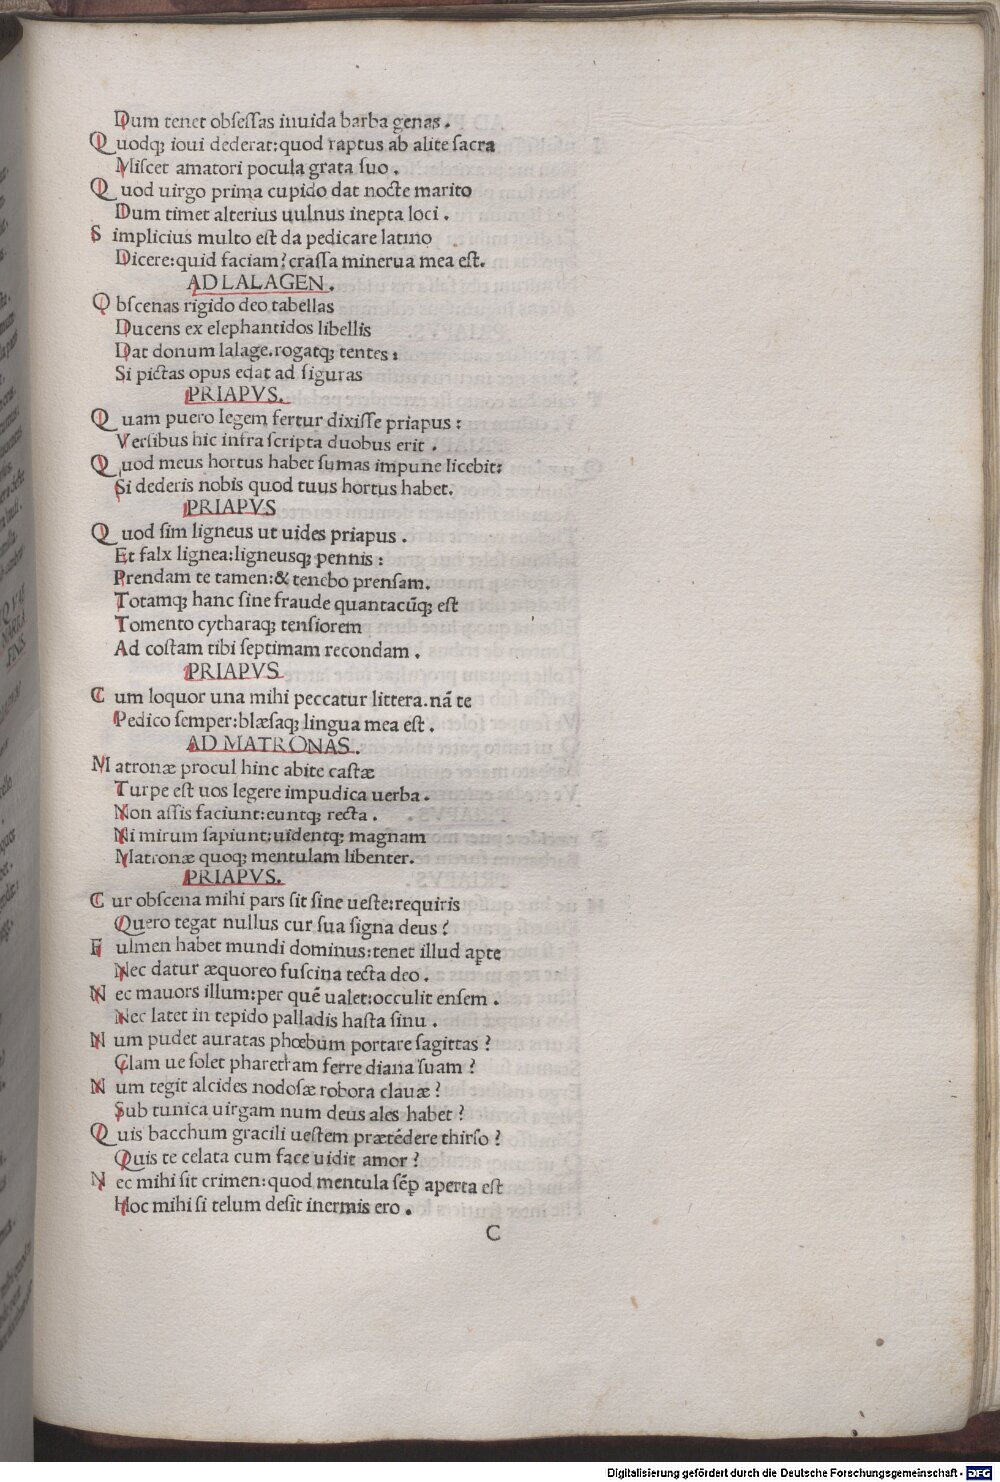 Dum tenet obſeſſas inuida barba genas .
Quodq; ioui dederat: quod raptus ab alite ſacra
Miſcet amatori pocula grata ſuo .
Quod uirgo prima cupido dat nocte marito
Dum timet alterius uulnus inepta loci .
Simplicius multo eſt da pedicare latino
Dicere: quid faciam? craſſa minerua mea eſt.
AD LALAGEN .
Obſcenas rigido deo tabellas
Ducens ex elephantidos libellis
Dat donum lalage. rogatq; tentes :
Si pictas opus edat ad figuras
PRIAPVS.
Quam puero legem fertur dixiſſe priapus :
Verſibus hic infra ſcripta duobus erit .
Quod meus hortus habet ſumas impune licebit:
Si dederis nobis quod tuus hortus habet.
PRIAPVS
Quod ſim ligneus ut uides priapus .
Et falx lignea: ligneusq; pennis :
Prendam te tamen: & tenebo prenſam.
Totamq; hanc ſine fraude quantacūq; eſt
Tomento cytharaq; tenſiorem
Ad coſtam tibi ſeptimam recondam .
PRIAPVS
Cum loquor una mihi peccatur littera. nā te
Pedico ſemper: blæſaq; lingua mea eſt .
AD MATRONAS .
Matronæ procul hinc abite caſtæ
Turpe eſt uos legere impudica uerba .
Non aſſis faciunt: euntq; recta .
Ni mirum ſapiunt: uidentq; magnam
Matronæ quoq; mentulam libenter.
PRIAPVS.
Cur obſcena mihi pars ſit ſine ueſte: requiris
Quero tegat nullus cur ſua ſigna deus ?
Fulmen habet mundi dominus: tenet illud apte
Nec datur æquoreo fuſcina tecta deo .
Nec mauors illum: per quē ualet: occulit enſem .
Nec latet in tepido palladis haſta ſinu .
Num pudet auratas phœbum portare ſagittas ?
Clam ue ſolet pharetram ferre diana ſuam ?
Num tegit alcides nodoſæ robora clauæ ?
Sub tunica uirgam num deus ales habet ?
Quis bacchum gracili ueſtem prætēdere thirſo ?
Quis te celata cum face uidit amor ?
Nec mihi ſit crimen: quod mentula ſēꝑ aperta eſt
Hoc mihi ſi telum deſit inermis ero .
C
Digitalisierung gefördert durch die Deutsche Forschungsgemeinschaft - DFG